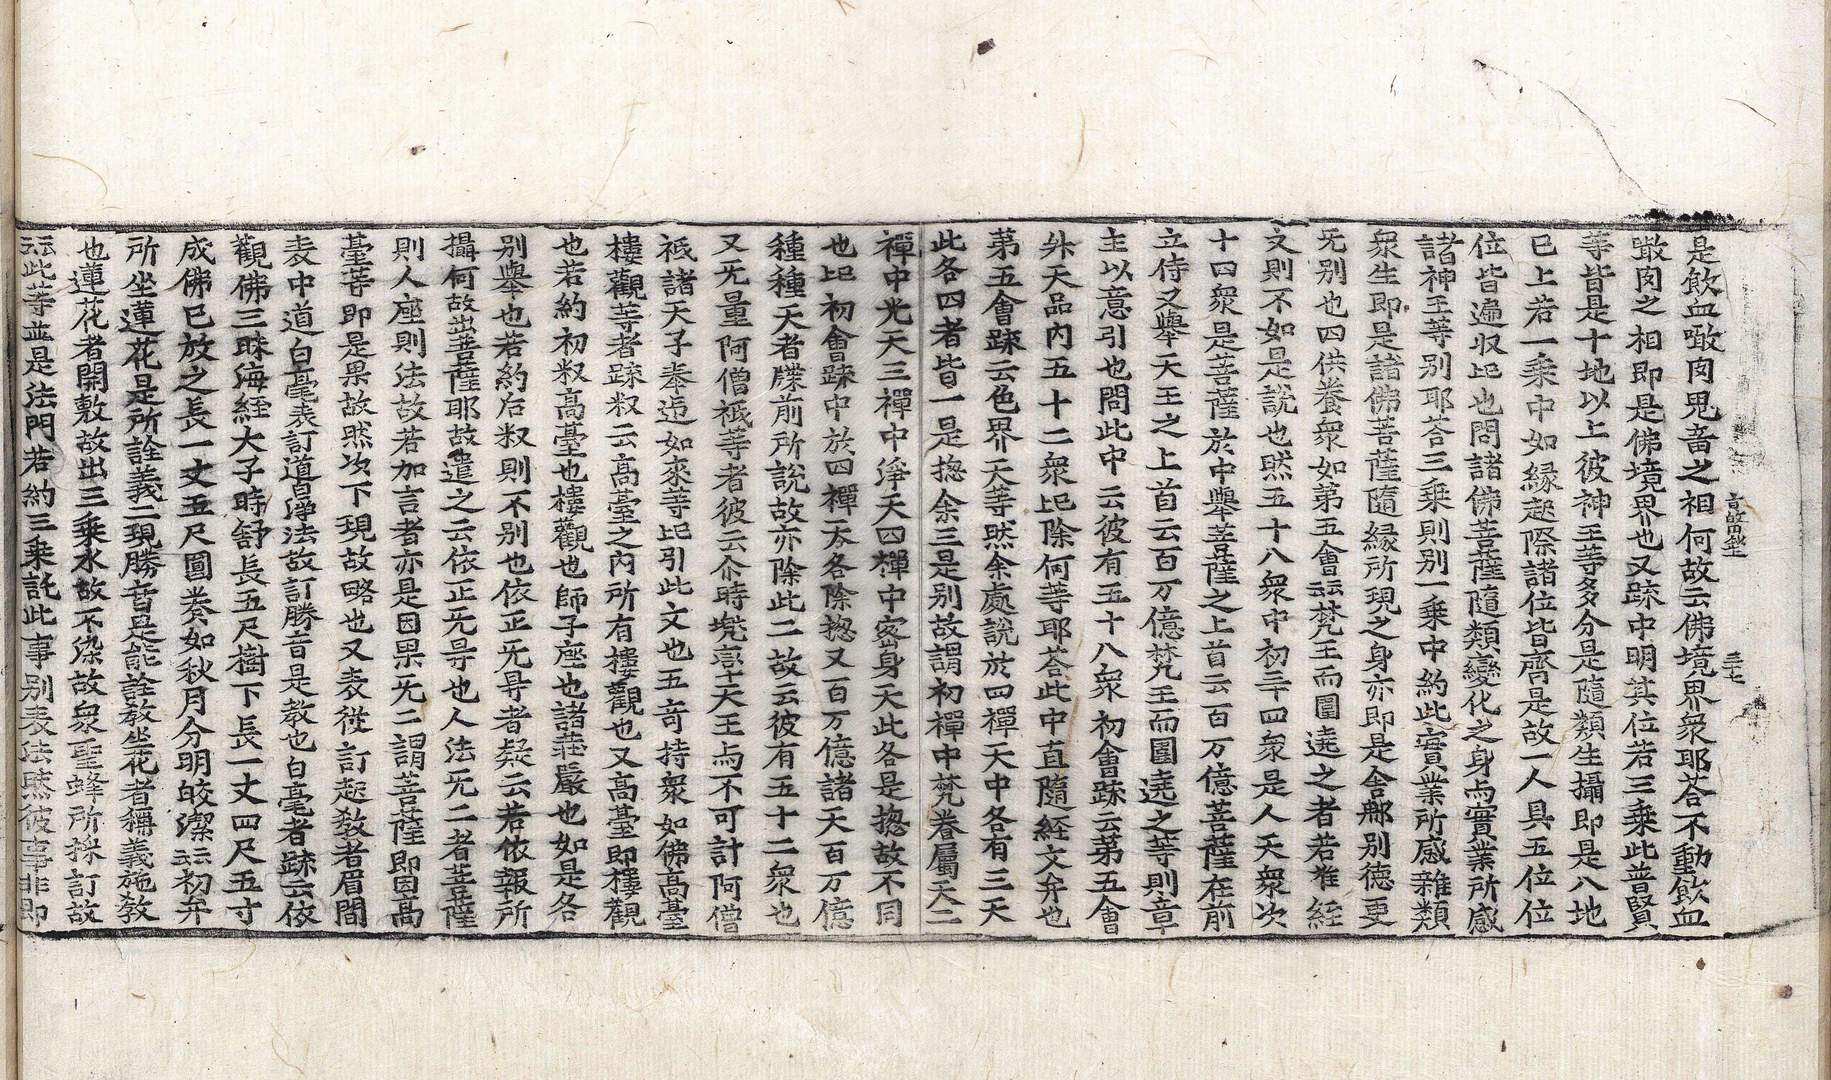 是飮血噉肉思啬之相何故云佛境界衆耶荅不動飮血
噉肉之相即是佛境界也又䟽中明其位若三乗此普賢
等皆是十地以上彼神王等多分是隨類生攝即是八地
已上若一乗中如縁起際諸位皆齊是故一人具五位位
位皆遍收也問諸佛菩薩隨類變化之身与實業所感
諸神王等别耶荅三乗則别一乗中約此實業所感雜類
衆生即是諸佛菩薩隨縁所現之身亦即是舍那别德更
无别也四供養衆如第五會云云梵王而圍遶之者若准經
文則不如是說也然五十八衆中初三十四衆是人天衆次
十四衆是菩薩於中舉菩薩之上首云百万億菩薩在前
立侍又舉天王之上首云百万億梵王而圍遶之等則章
主以意引也問此中云彼有五十八衆初會䟽云第五會
外天品內五十二衆也除何等耶荅此中直隨經文弁也
第五會䟽云色界天等然余處說於四禪天中各有三天
此各四者皆一是揔余三是别故謂初禪中梵眷屬天二
禪中光天三禪中淨天四禪中密身天此各是揔故不同
也也初會䟽中於四禪天各除揔又百万億諸天百万億
種種天者牒前所說故亦除此二故云彼有五十二衆也
又无量阿僧祇等者彼云尒時兜率天王与不可計阿僧
祇諸天子奉迎如來等也引此文也五奇持衆如佛髙臺
樓觀等者䟽釈云髙臺之內所有樓觀也又髙臺即樓觀
也若約初釈髙臺也樓觀也師子座也諸莊嚴也如是各
别舉也若約后釈則不别也依正无㝵者疑云若依報所
攝何故出菩薩耶故遣之云依正无㝵也人法无二者菩薩
則人座則法故若加言者亦是因果无二謂菩薩即因髙
臺等即是果故然次下現故略也又表從訂起教者眉間
表中道白毫表訂道淨法故訂勝音是教也白毫者䟽云依
觀佛三昧海經大子時舒長五尺樹下長一丈四尺五寸
成佛已放之長一丈五尺圍巻如秋月分明皎潔云云初弁
所坐蓮花是所詮義二現勝音是能詮敎坐花者稱義施敎
也蓮花者開敷故出三乗水故不染故衆聖蜂所採訂故
云云此等並是法門若約三乗託此事别表法䟽彼事非即